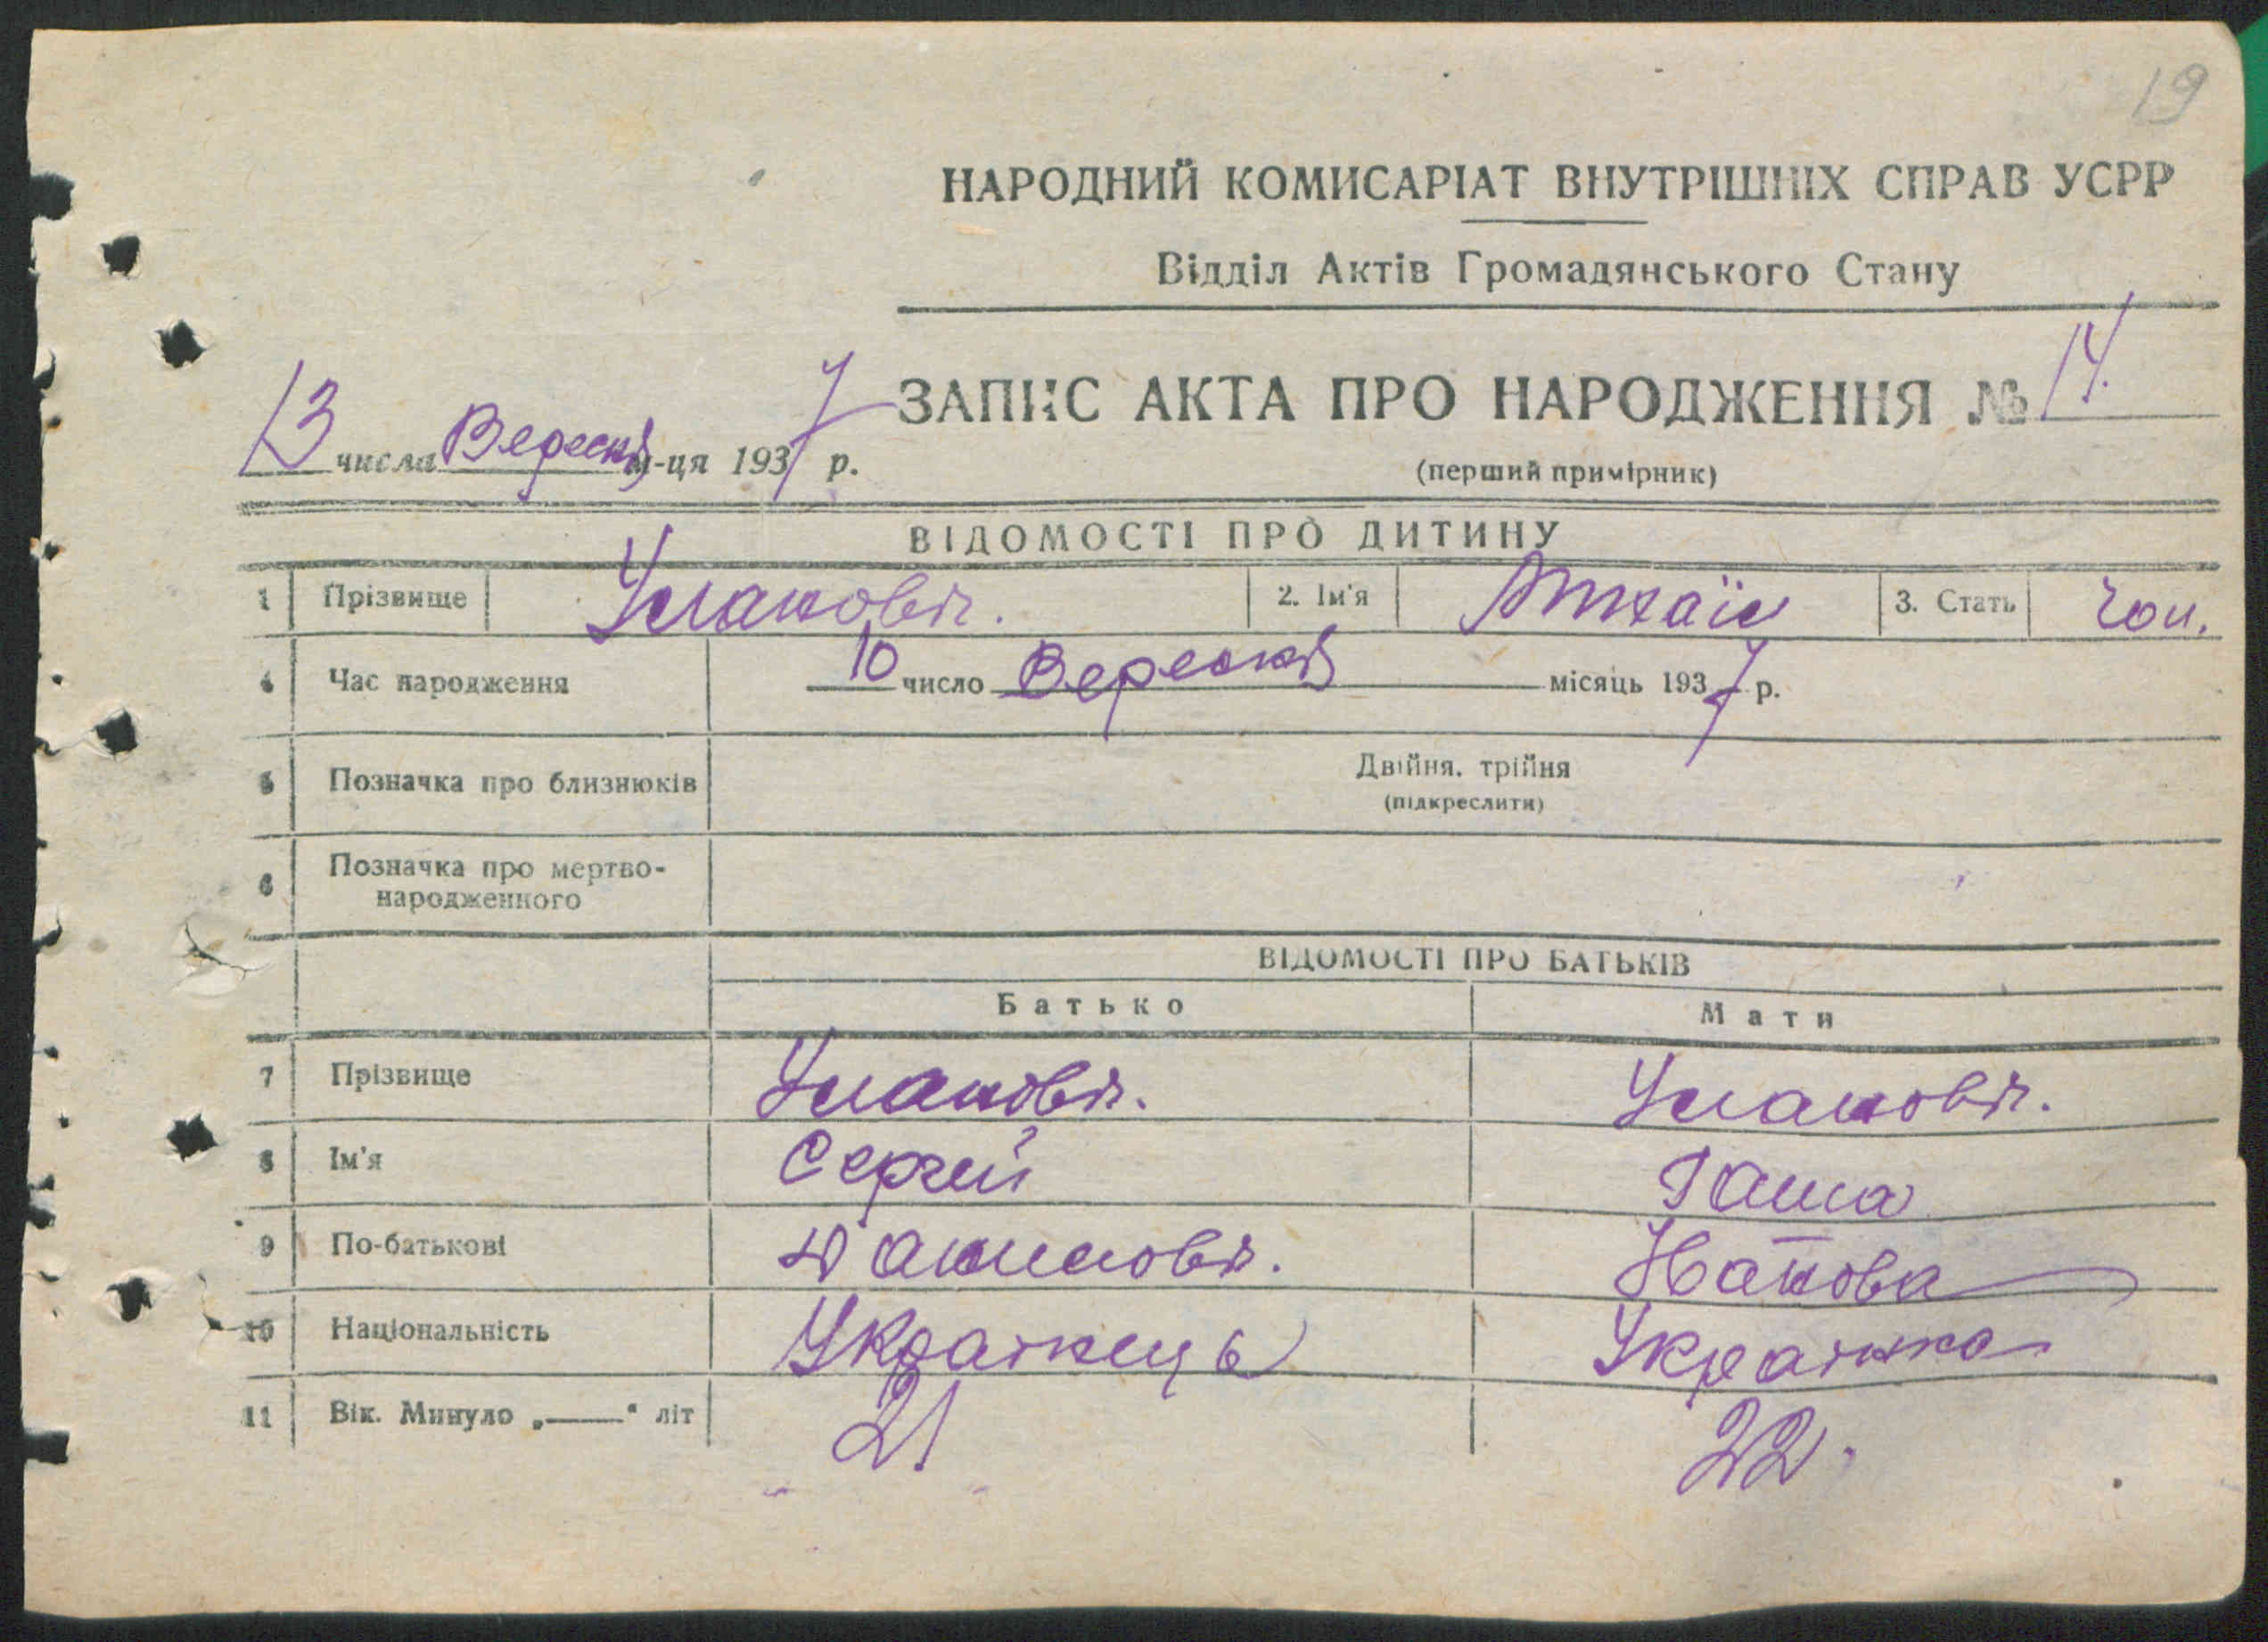 19
НАРОДНИЙ КОМИСАРІАТ ВНУТРІШНІХ СПРАВ УСРР
Відділ Актів Громадянського Стану
ЗАПИС АКТА ПРО НАРОДЖЕННЯ № 14.
13 числа Вересня м-ця 1937 р.
(перший примірник)
ВІДОМОСТІ ПРО ДИТИНУ
1 Прізвище 2. Ім'я 3. Стать Чол.
4 Час народження 10 число Вересня місяць 1937 р.
5 Позначка про близнюків Двійня, трійня
(підкреслити)
6 Позначка про мертво-
народженного
ВІДОМОСТІ ПРО БАТЬКІВ
Батько Мати
7 Прізвище
8 Ім'я Сергей Ганна
9 По-батькові
10 Національність Українець Українка
11 Вік. Минуло „—“ літ 21 22.